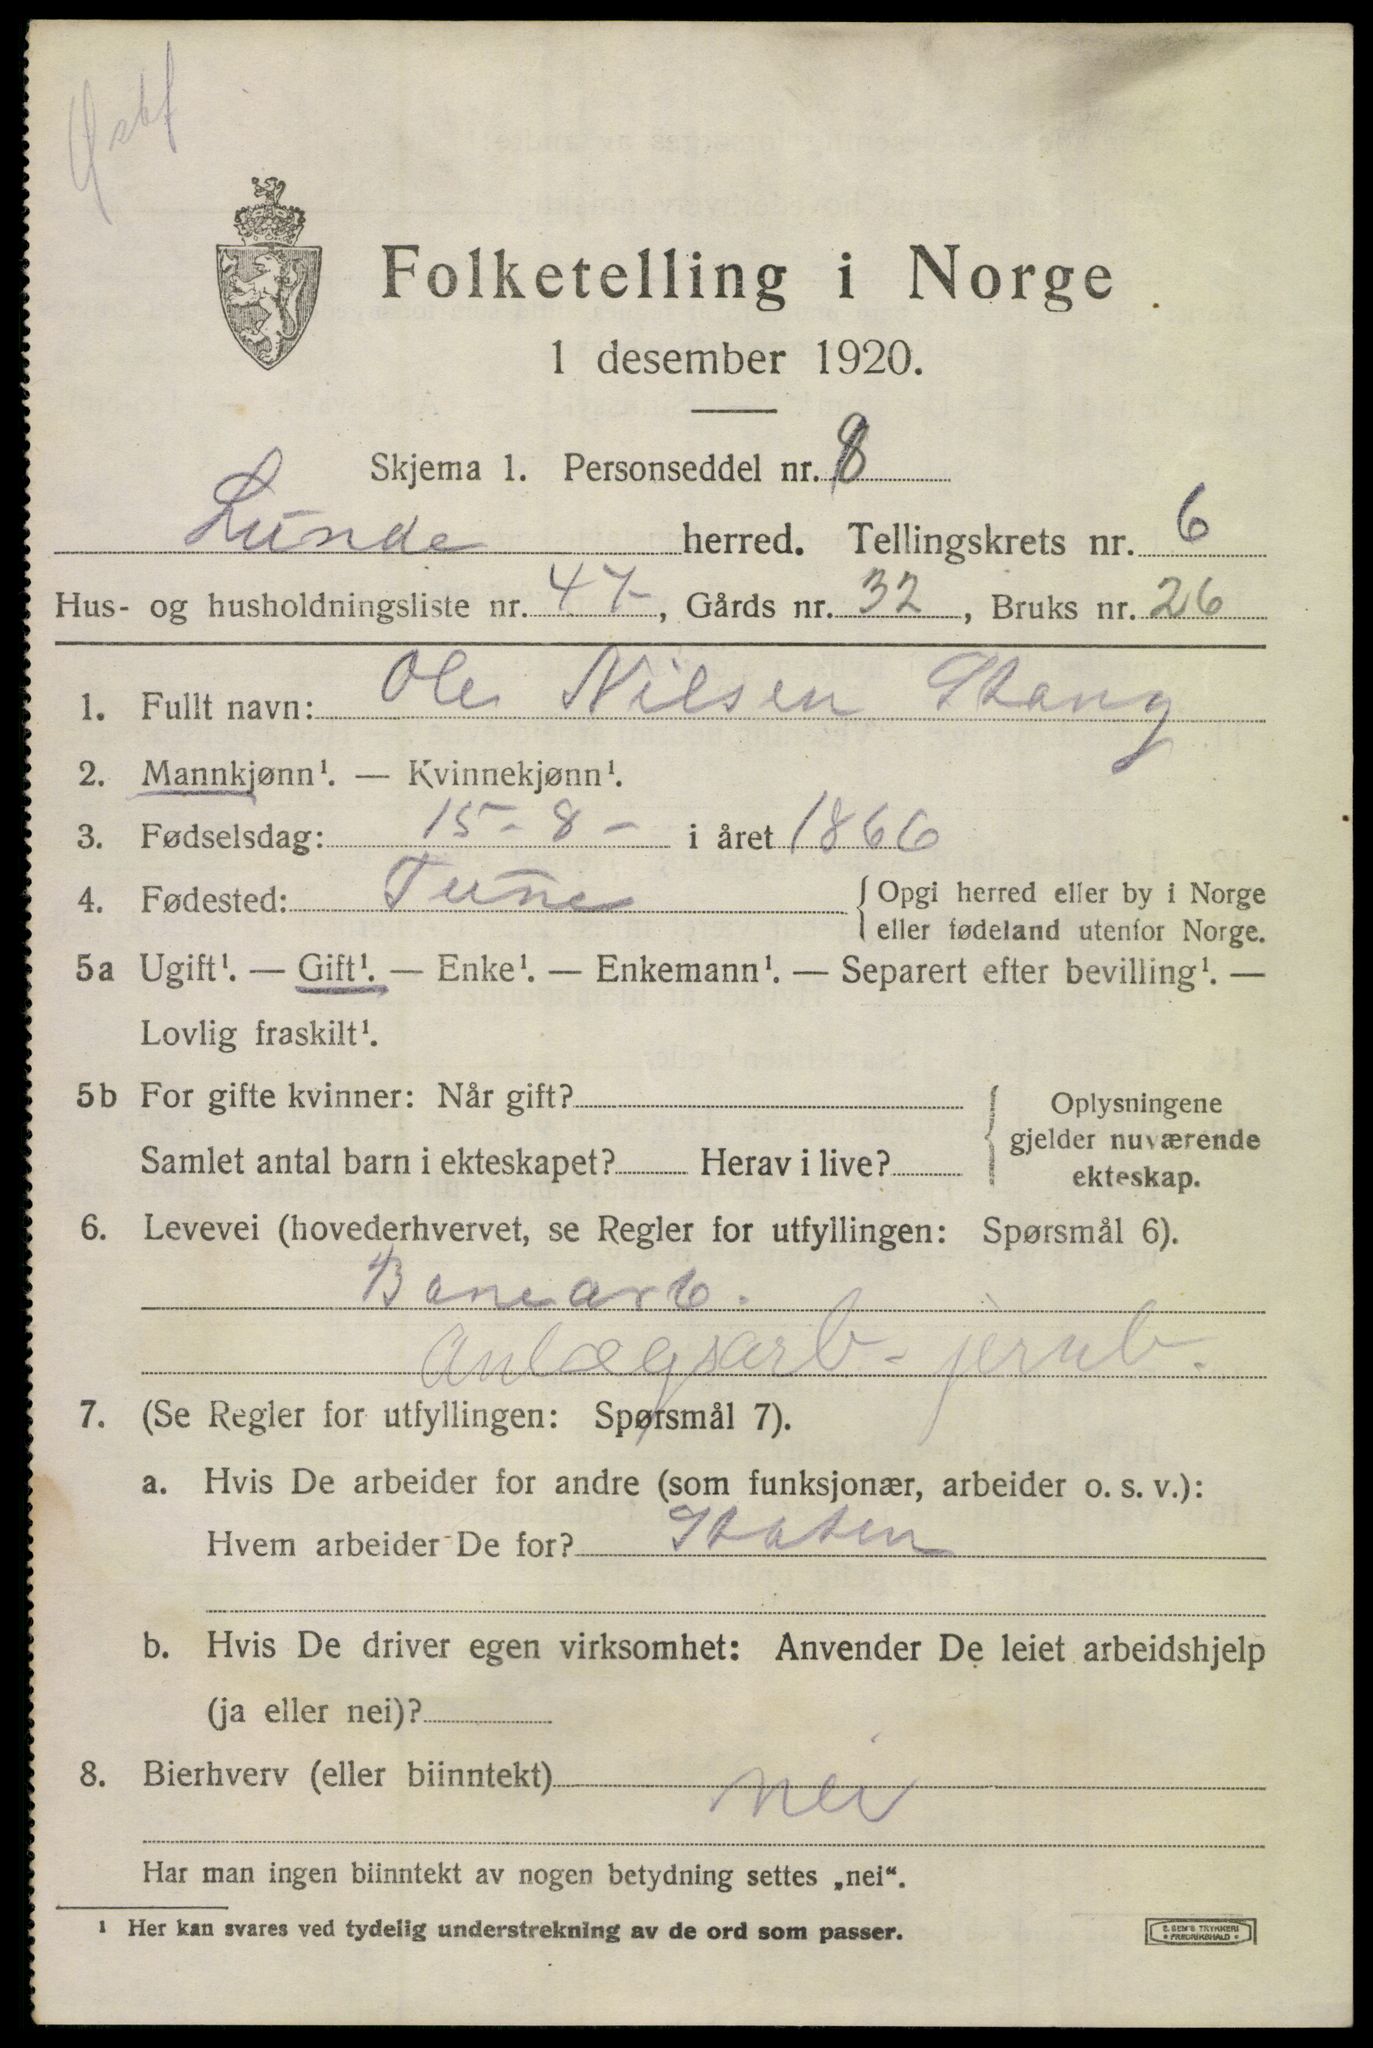 Østf
Folketelling i Norge
1 desember 1920.
Skjema 1. Personseddel nr. 8
Lunde herred. Tellingskrets nr. 6
Hus- og husholdningsliste nr. 47-, Gårds nr. 32, Bruks nr. 26
1. Fullt navn: Ole Nilsen Stang
2. Mannkjønn¹. — Kvinnekjønn¹.
3. Fødselsdag: 15-8- i året 1866
4. Fødested: Tune { Opgi herred eller by i Norge
eller fødeland utenfor Norge.
5a Ugift¹. — Gift¹. — Enke¹. — Enkemann¹. — Separert efter bevilling¹. —
Lovlig fraskilt¹.
5b For gifte kvinner: Når gift?
Samlet antal barn i ekteskapet? Herav i live?
Oplysningene
gjelder nuværende
ekteskap.
6. Levevei (hovederhvervet, se Regler for utfyllingen: Spørsmål 6).
Banearb.
Anlægsarb - jernb.
7. (Se Regler for utfyllingen: Spørsmål 7).
a. Hvis De arbeider for andre (som funksjonær, arbeider o. s. v.):
Hvem arbeider De for? Staten
b. Hvis De driver egen virksomhet: Anvender De leiet arbeidshjelp
(ja eller nei)?
8. Bierhverv (eller biinntekt) nei
Har man ingen biinntekt av nogen betydning settes „nei“.
¹ Her kan svares ved tydelig understrekning av de ord som passer.
E. SEM'S TRYKKERI
• FREDRIKSHALD •